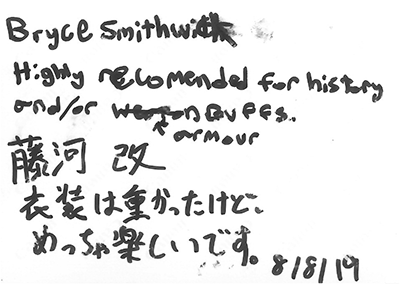 Bryce Smithwick
Highly recomended for history
and/or armour BUFFS.
藤河 改
衣装は重かったけど、
めっちゃ楽しいです。
8/8/19